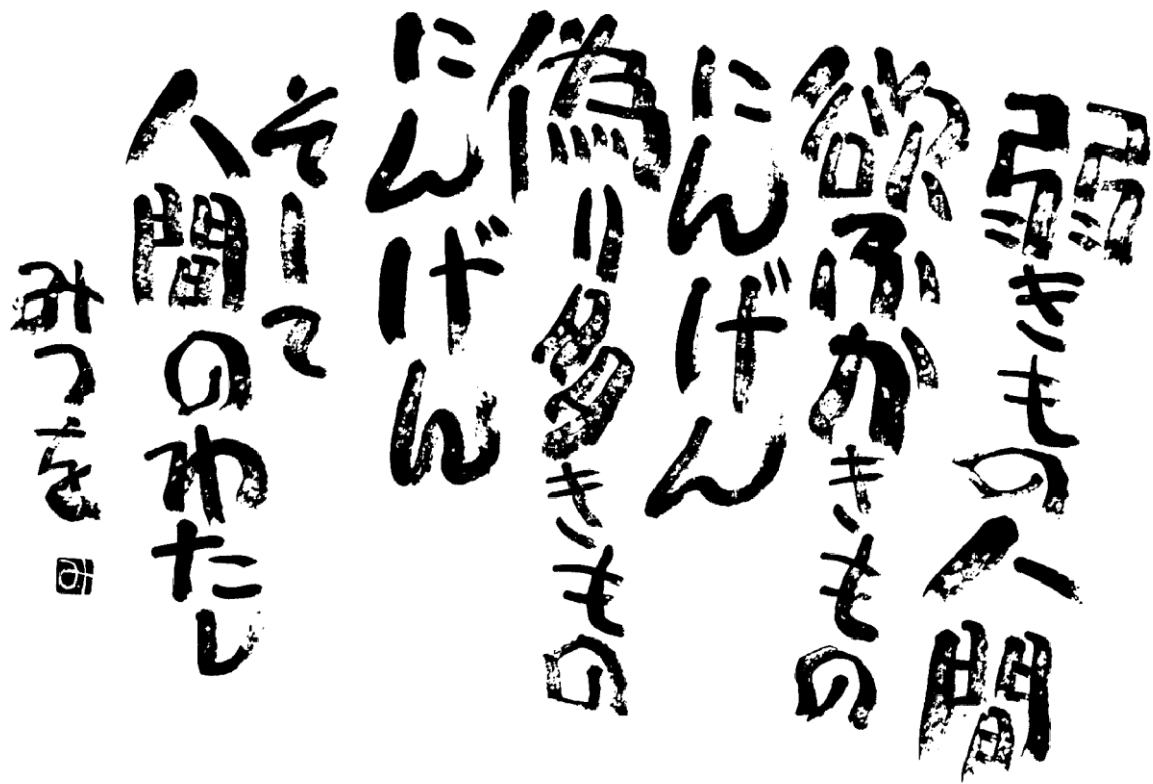 弱きもの人間
欲ふかきもの
にんげん
偽り多きもの
にんげん
そして
人間のわたし
みつを